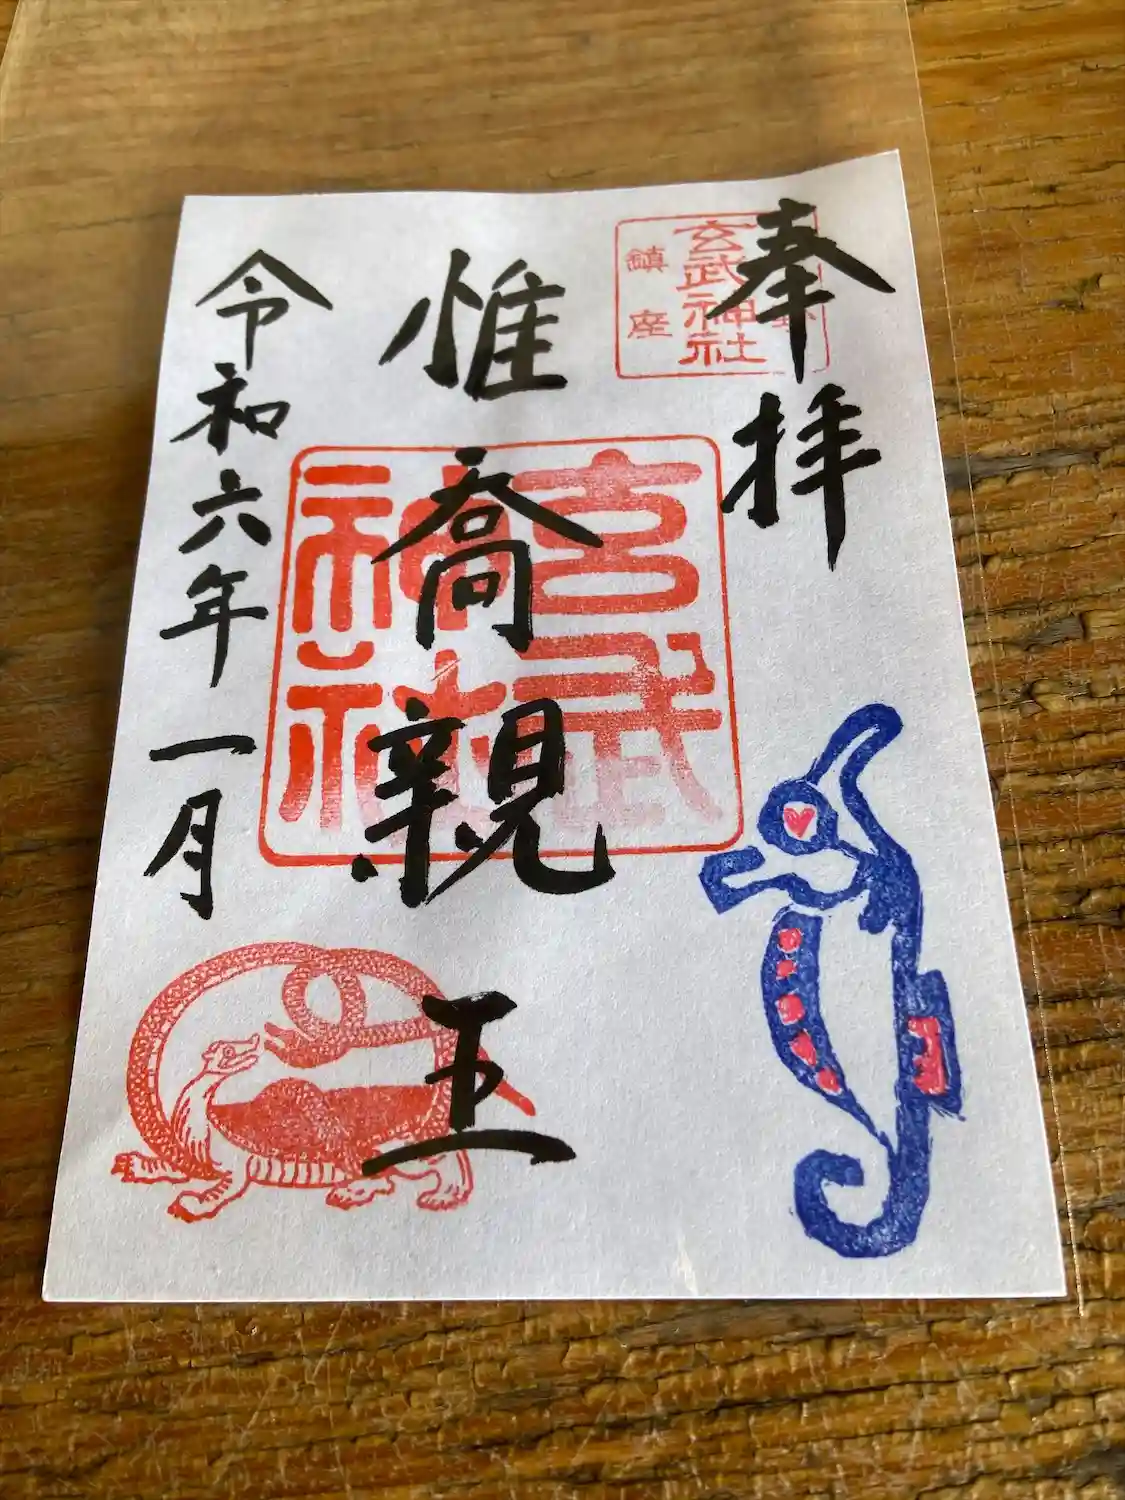 奉拝
玄武神社
鎮産
惟喬親王
玄武神社
令和六年一月